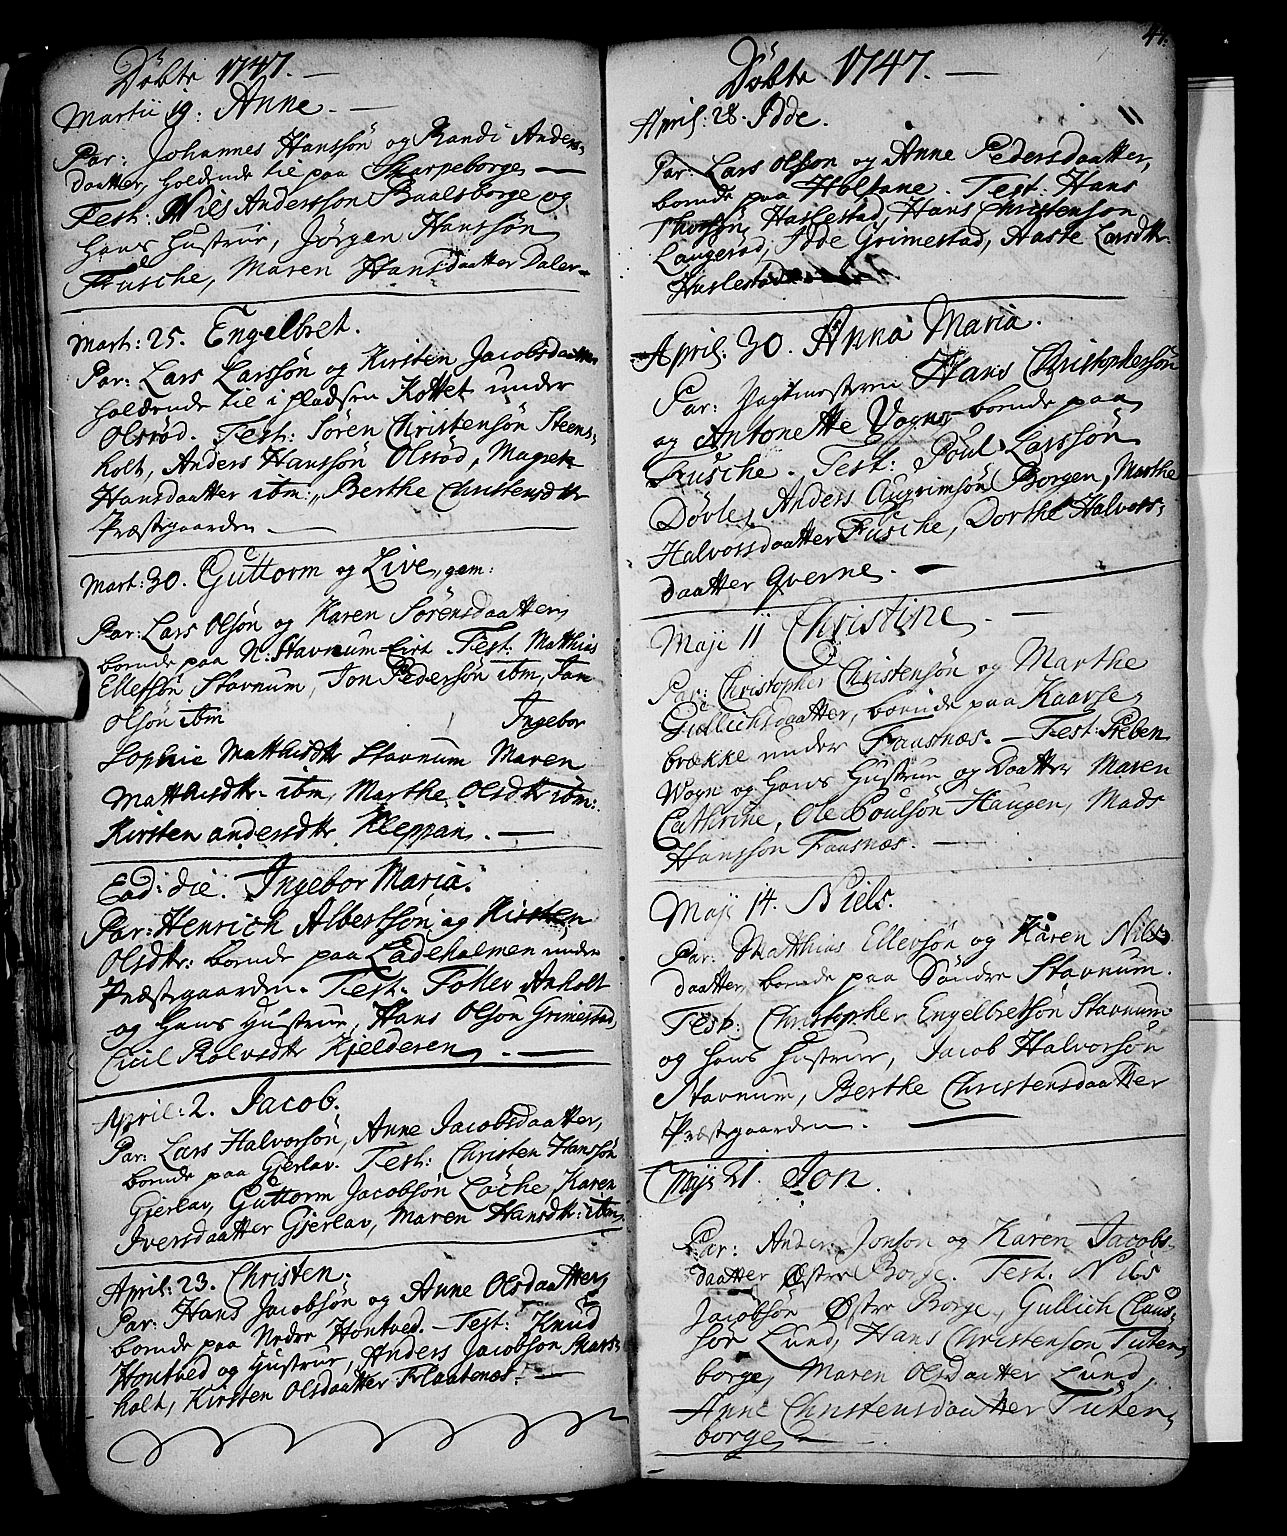 Döbte 1747.
Martii 19. Anne.
Par: Johannes Hanssön og Randi Anders-
daatter, holdende til paa Skarpeborge
Test: Niels Andersson Baalsborge og
hans Hustrue, Jörgen Hanssön
Fusche, Maren Hansdaatter Daler-
Mart: 25. Engelbret.
Par: Lars Larssön og Kirsten Jacobsdaatter
holdende til i Pladsen Kottet under
Olsröd. Test: Sören Christensön Steens-
holt, Anders Hanssön Olsröd, Magrete
Hansdaatter ibm: Berthe Christensdtr
Præstegaarden.
Mart: 30. Guttorm og Live, gem:
Par: Lars Olsön og Karen Sörensdaatter,
boende paa N: Stavnum Test: Matthias
Ellefsön Stavnum, Jon Pedersön ibm, Jan
Olsön ibm Ingebor
Sophie Matthisdtr Stavnum Maren
Matthisdtr ibm, Marthe Olsdtr ibm:
Kirsten andersdtr Kleppan.
Ead: die. Ingebor Maria.
Par: Henrich Albertsön og Kirsten
Olsdtr: boende paa Ladeholmen under
Præstegaarden. Test. Toller Anholt
og hans Hustrue, Hans Olsön Grimestad,
Cicil Rolvsdtr Kjelderen.
April: 2. Jacob.
Par: Lars Halvorsön, Anne Jacobsdaatter,
boende paa Gjerlav. Test: Christen Hanssön
Gjerlav, Guttorm Jacobsön Löche, Karen
Iversdaatter Gjerlav, Maren Hansdtr: ibm,
April: 23. Christen.
Par: Hans Jacobsön og Anne Olsdaatter,
boende paa Nedre Hontved. Test: Knud
Hontved og Hustrue, Anders Jacobsön Skars-
holt, Kirsten Olsdaatter Flaatenes.
44.
Döbte 1747.
April: 28. Idde.
11
Par: Lars Olsson og Anne Pedersdaatter,
boende paa Holtane. Test: Hans
Thorssön Haslestad, Hans Christenson
Laugeröd, Idde Grimestad, Haste Larsdtr
Haslestad
April: 30. Anna Maria.
Par: Vagtmesteren Hans Christophersön
og Antonette Vogns boende paa
Fusche. Test: Poul Larssön
Dövle, Anders Augrimsön Borgen, Marthe
Halvorsdaatter Fusche, Dorthe Halvors-
daatter Qverne.
Maji 11 Christine.
Par: Christopher Christensön og Marthe
Gullichsdaatter, boende paa Kaarse-
brække under Faasnæs. Test: Preben
Wogn og hans Hustrue og Daatter Maren
Cathrine, Ole Poulsön Haugen, Mads
Hanssön Faasnæs.
Maji 14. Niels.
Par: Matthias Ellevsön og Karen Nils-
daatter, boende paa Söndre Stavnum.
Test: Christopher Engelbretsön Stavnum
og hans Hustrue, Jacob Halvorsön
Stavnum, Berthe Christensdaatter
Præstegaarden.
Maji 21. Jon.
Par: Anders Jonson og Karen Jacobs-
daatter Østre Borge. Test: Nils
Jacobsön Østre Borge, Gullich Claus-
sön Lund, Hans Christenson Tuten-
borge, Maren Olsdaatter Lund,
Anne Christensdaatter Tuten-
borge